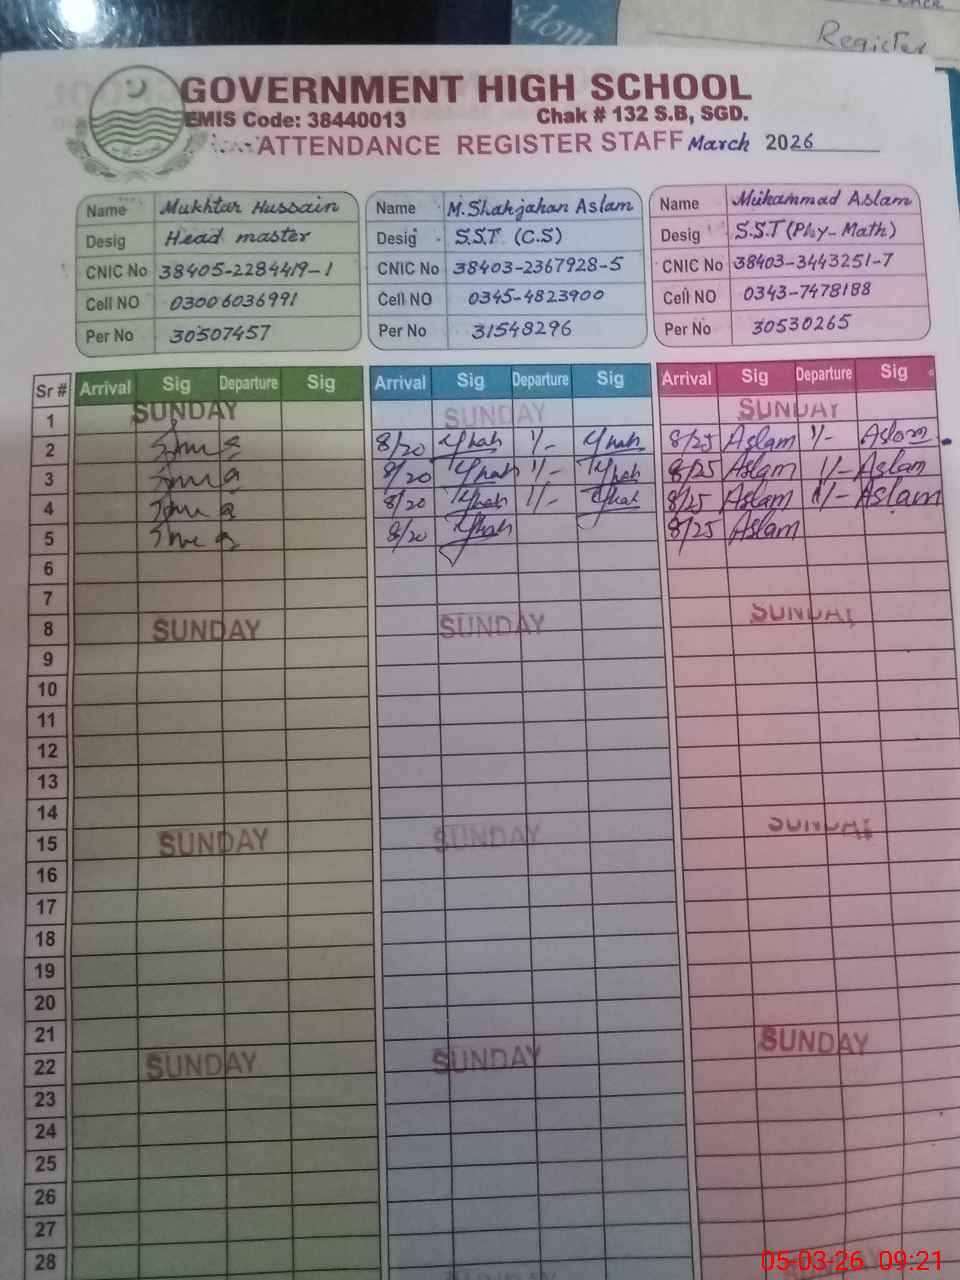 sdom
Register
GOVERNMENT HIGH SCHOOL
EMIS Code: 38440013 Chak # 132 S.B, SGD.
ATTENDANCE REGISTER STAFF March 2026
Name Mukhtar Hussain Name M.Shahjahan Aslam Name Muhammad Aslam
Desig Head master Desig S.S.T (C.S) Desig S.S.T (Phy-Math)
CNIC No 38405-2284419-1 CNIC No 38403-2367928-5 CNIC No 38403-3443251-7
Cell NO 03006036991 Cell NO 0345-4823900 Cell NO 0343-7478188
Per No 30507457 Per No 31548296 Per No 30530265
Sr # Arrival Sig Departure Sig Arrival Sig Departure Sig Arrival Sig Departure Sig
1 SUNDAY SUNDAY SUNDAY
2 8/20 1/- 8/25 Aslam 1/- Aslam
3 8/20 1/- 8/25 Aslam 1/- Aslam
4 8/20 1/- 8/25 Aslam 1/- Aslam
5 8/20 8/25 Aslam
6
7
8 SUNDAY SUNDAY SUNDAY
9
10
11
12
13
14
15 SUNDAY SUNDAY SUNDAY
16
17
18
19
20
21
22 SUNDAY SUNDAY SUNDAY
23
24
25
26
27
28
05-03-26 09:21